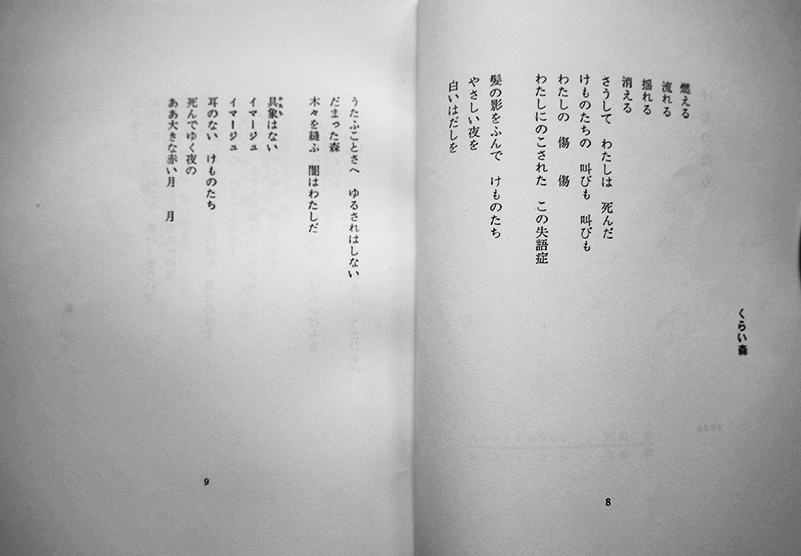 くらい森
燃える
流れる
揺れる
消える
さうして わたしは 死んだ
けものたちの 叫びも 叫びも
わたしの 傷 傷
わたしにのこされた この失語症
髪の影をふんで けものたち
やさしい夜を
白いはだしを
8
うたふことさへ ゆるされはしない
だまった森
木々を縫ふ 闇はわたしだ
具象はない
イマージュ
イマージュ
耳のない けものたち
死んでゆく夜の
ああ大きな赤い月 月
9